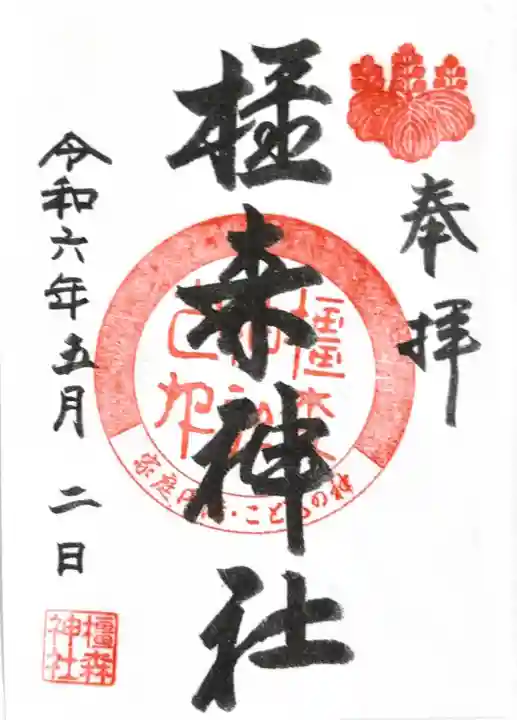 奉拝
橿森神社
家庭円満・こどもの神
令和六年五月二日
橿森神社